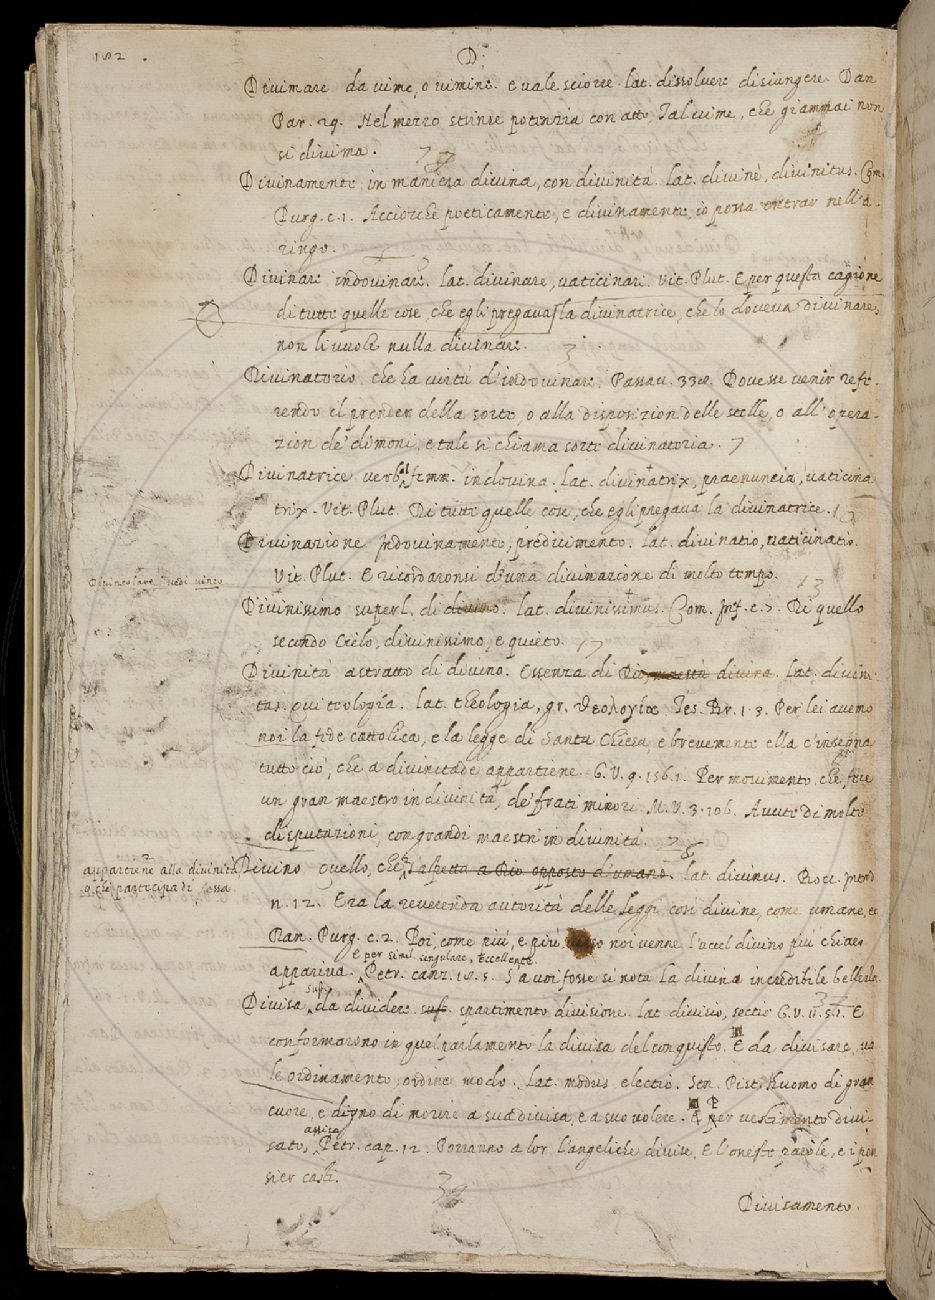 182.
D.
Divimare da vime, o vimine. e vale sciorre. lat. dissolvere disiungere. Dan
Par. 29. Nel mezzo strinse potenzia con atto, Tal vime, che giammai non
si divima.
Divinamente in maniera divina, con divinità. lat. divinè, divinitus. Com.
Purg. c. 1. Acciocche poeticamente, e divinamente, io possa entrar nell'a-
ringo.
Divinare indovinare. lat. divinare, vaticinari. Vit. Plut. E per questa cagione
di tutte quelle cose, che egli pregava la divinatrice, che lo doveva divinare,
non li vuole nulla divinare.
Divinatorio che ha virtù d'indovinare. Passav. 338. Dovesse venir refe-
rendo il prender della sorte, o alla disposizion delle stelle, o all'opera-
zion de' dimoni, e tale si chiama sorte divinatoria.
Divinatrice verbal femm. indovina. lat. divinatrix, praenuncia, vaticina
trix. Vit. Plut. Di tutte quelle cose, che egli pregava la divinatrice.
Divinazione Indovinamento, predivimento. lat. divinatio, vaticinatio.
Vit. Plut. E ricordaronsi d'una divinazione di molto tempo. 13
Divincolare vedi vinco
Divinissimo superl. di divino. lat. divinissimus. Com. Inf. c. 7. Di quello
secondo Cielo, divinissimo, e quieto. 17
Divinità astratto di divino. Essenza di Dio, maestà divina. lat. divini-
tas. Qui teologia. lat. theologia, gr. θεολογία. Tes. Br. 1. 3. Per lei avemo
noi la fede cattolica, e la legge di Santa Chiesa, e brevemente ella c'insegna
tutto ciò, che a divinitade appartiene. G. V. 9. 156. 1. Per movimento, che fece
un gran maestro in divinità, de' frati minori. M. V. 3. 106. Avute di molte
disputazioni, con grandi maestri in divinità.
appartiene alla divinità
o che participa di essa.
Divino quello, che s'aspetta a Dio opposto d'umano. lat. divinus. Bocc. Introd
n. 12. Era la reverenda autorità delle leggi, così divine, come umane, etc
Dan. Purg. c. 2. Poi, come più, e più verso noi venne L'uccel divino più chiaro
E per simil. singulare, Eccellente.
appariva. Petr. canz. 18. 5. S'a voi fosse si nota La divina incredibile bellezza
sust.
Divisa da dividere. sust. spartimento divisione. lat. divisio, sectio G. V. E
confermarono in quel parlamento la divisa del conquisto. E da divisare, va
le ordinamento, ordine modo. lat. modus electio. Sen. Pist. Huomo di gran
cuore, e digno di morire a sua divisa, e a suo volere. E per vestimento divi-
sato, Petr. cap. 12. Porranno a lor l'angeliche divise, E l'oneste parole, e i pen
sier casti.
Divisamento.